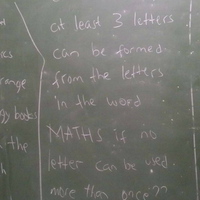 at least 3 letters
can be formed
from the letters
in the word
MATHS if no
letter can be used
more than once??
range
books
the